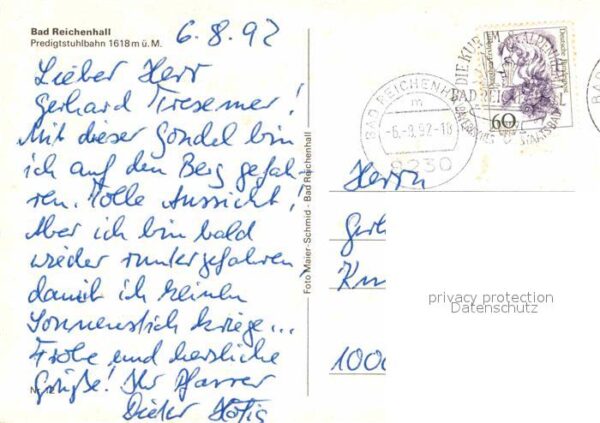 Bad Reichenhall
Predigtstuhlbahn 1618 m ü. M.
6.8.92
Lieber Herr
Gerhard Tresemer!
Mit dieser Gondel bin
ich auf den Berg gefah-
ren. Tolle Aussicht!
Aber ich bin bald
wieder runtergefahren
damit ich keinen
Sonnenstich kriege...
Frohe und herzliche
Grüße! Ihr Pfarrer
Dieter
Foto Maier-Schmid - Bad Reichenhall
BAD REICHENHALL
m
-6.-8.92-18
8230
DIE KUR
BAD REICHENHALL
60
Deutsche Bundespost
Herrn
Gerh
1000
privacy protection
Datenschutz